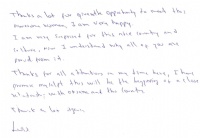 Thanks a lot for growth opportunity to meet this
awesome woman, I am very happy.
I am very surprised for this nice country and
culture, now I understand why all of you are
proud from it.
Thanks for all attentions in my time here, I have
promise myself this will be the beginning of a close
with and the country.
Thank a lot again,
Luis